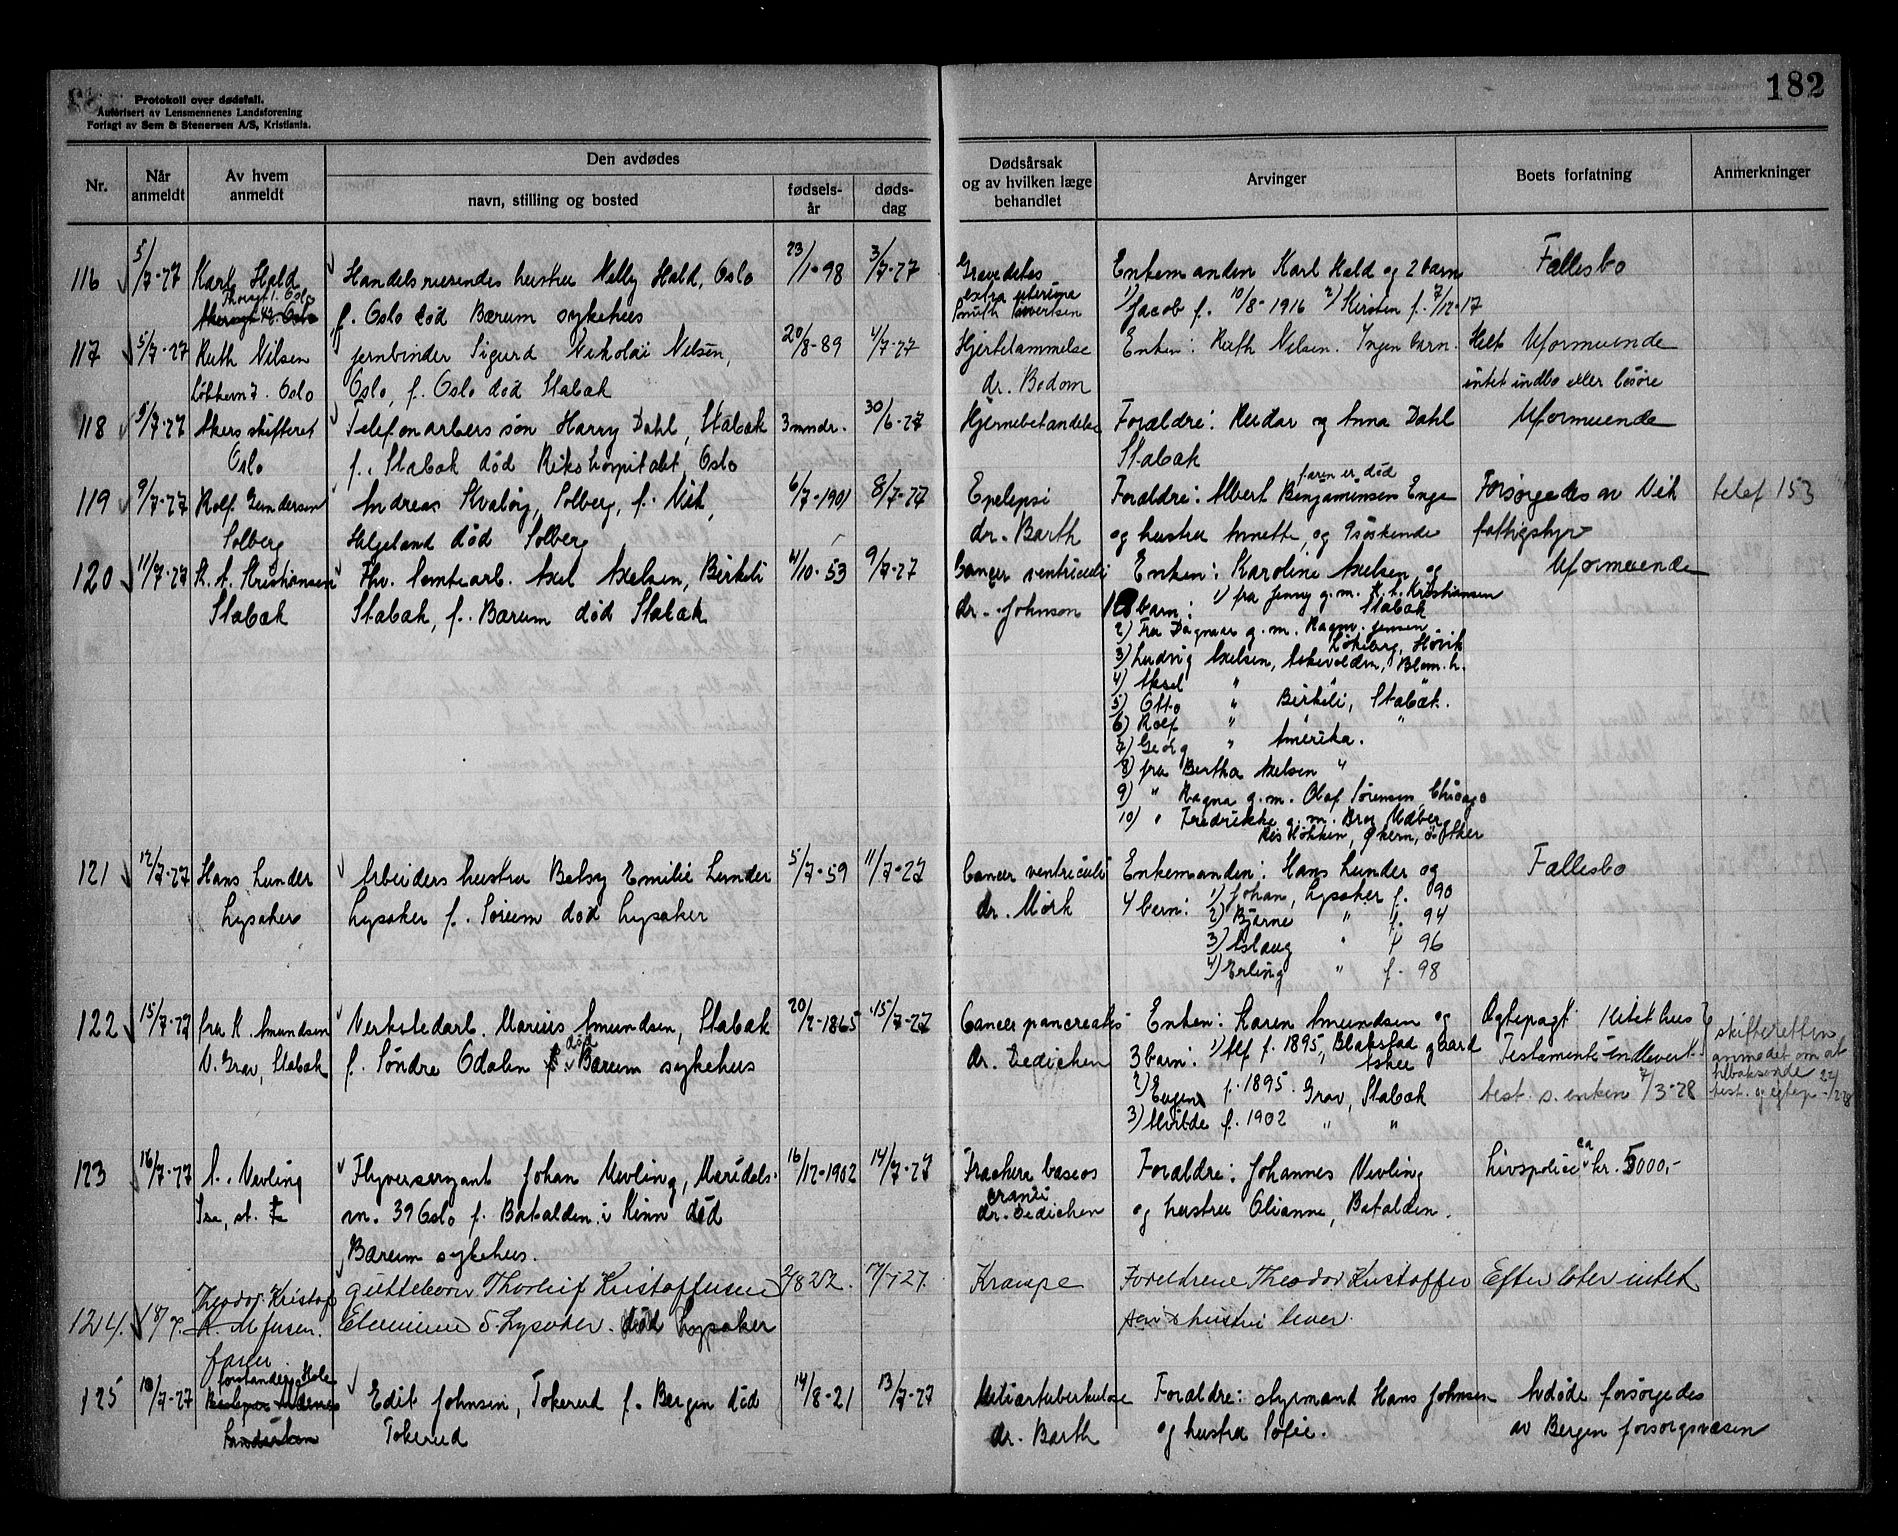 182
Protokoll over dødsfall.
Autorisert av Lensmennenes Landsforening
Forlagt av Sem & Stenersen A/S, Kristiania.
Nr.
Når anmeldt
Av hvem anmeldt
Den avdødes
navn, stilling og bosted
fødsels-år
døds-dag
Dødsårsak og av hvilken læge behandlet
Arvinger
Boets forfatning
Anmerkninger
116 5/7-27 Karl Hald Handelsreisendes hustru Nelly Hald, Oslo 23/1-98 3/7-27 Graviditas Enkemanden Karl Hald og 2 barn Fællesbo
Oslo f. Oslo død Bærum sykehus extra uterina 1) Jacob f. 10/8-1916 2) Kirsten f. 7/12-17
117 5/7-27 Ruth Nilsen jernbinder Sigurd Nikolai Nilsen, 20/8-89 4/7-27 Hjertelammelse Enken: Ruth Nilsen. Ingen barn. Helt Uformuende
Oslo Oslo, f. Oslo død Stabæk dr. Bodom intet indbo eller løsøre
118 5/7-27 Akers skifteret Telefonarbeiders søn Harry Dahl, Stabæk 3 mndr. 30/6-27 Hjernebetændelse Forældre: Reidar og Anna Dahl Uformuende
Oslo f. Stabæk død Rikshospitalet, Oslo Stabæk
faren er død
119 9/7-27 Rolf Gundersen Andreas Kvaløy, Solberg, f. Vik, 6/7-1901 8/7-27 Epelepsi Forældre: Albert Benjaminsen Enge Forsørgedes av Vik telef 153
Solberg Helgeland død Solberg dr. Barth og hustru Annette, og 9 søskende fattigstyr
120 11/7-27 K. A. Kristiansen Fhv. tomtearb. Axel Axelsen, Birkeli 4/10-53 9/7-27 Cancer ventriculi Enken: Karoline Axelsen og Uformuende
Stabæk Stabæk, f. Bærum død Stabæk dr. Johnson 10 barn: 1) fru Jenny g.m. K. A. Kristiansen
Stabæk
2) Fru Dagmar g.m. Ragnv. Jensen
Løkeberg, Høvik
3) Ludvig Axelsen, Askevolden, Blom.h.
4) Aksel "
5) Otto " Birkeli, Stabæk.
6) Rolf " " "
7) Georg " Amerika.
8) fru Bertha Axelsen "
9) " Ragna g.m. Olaf Sørensen, Chicago
10) " Fredrikke g.m. Bror Mdberg
121 12/7-27 Hans Lunder Arbeiders hustru Betsy Emilie Lunder 5/7-59 11/7-27 Cancer ventriculi Enkemanden: Hans Lunder og Fællesbo
Lysaker Lysaker f. Sørum død Lysaker dr. Mørk 4 barn: 1) Johan, Lysaker f. 90
2) Bjarne " f. 94
3) Aslaug " f. 96
4) Erling " f. 98
122 15/7-27 fru K. Amundsen Verkstedarb. Marius Amundsen, Stabæk 20/2-1865 15/7-27 Cancer pancreatis Enken: Karen Amundsen og Ægtepagt. Litet hus skifteretten
N. Grav, Stabæk f. Søndre Odalen død Bærum sykehus dr. Dedichen 3 barn: 1) Alf f. 1895, Blakstad gaard Testamente indlevert anmodet om at
Asker
2) Eugen f. 1895. Grav, Stabæk test. s. enken 7/3-28 tilbakesende
3) Alvilde f. 1902 " " test. og egtep
123 16/7-27 A. Nevling Flyversersjant Johan Nevling, Maridals- 16/12-1902 14/7-27 Fractura baseos Forældre: Johannes Nevling Livspolice ca kr. 5000,-
vn. 39 Oslo f. Batalden i Kinn død cranii og hustru Olianne, Batalden.
Bærum sykehus. dr. Dedichen
124. 18/7. Theodor Kristof guttebarn Thorleif Kristoffersen 2/8 22. 17/7 27. Krampe Foreldrene Theodor Kristoffer Efterlater intet
fersen. Lysaker. død Lysaker sen & hustru lever.
faren
125 18/7-27 forstanderinde Edit Johnsen, Tokerud f. Bergen død 14/8-21 13/7-27 Miliærtuberkulose Forældre: styrmand Hans Johnsen Avdøde forsørgedes
Tokerud dr. Barth og hustru Sofie. av Bergen forsorgsvæsen